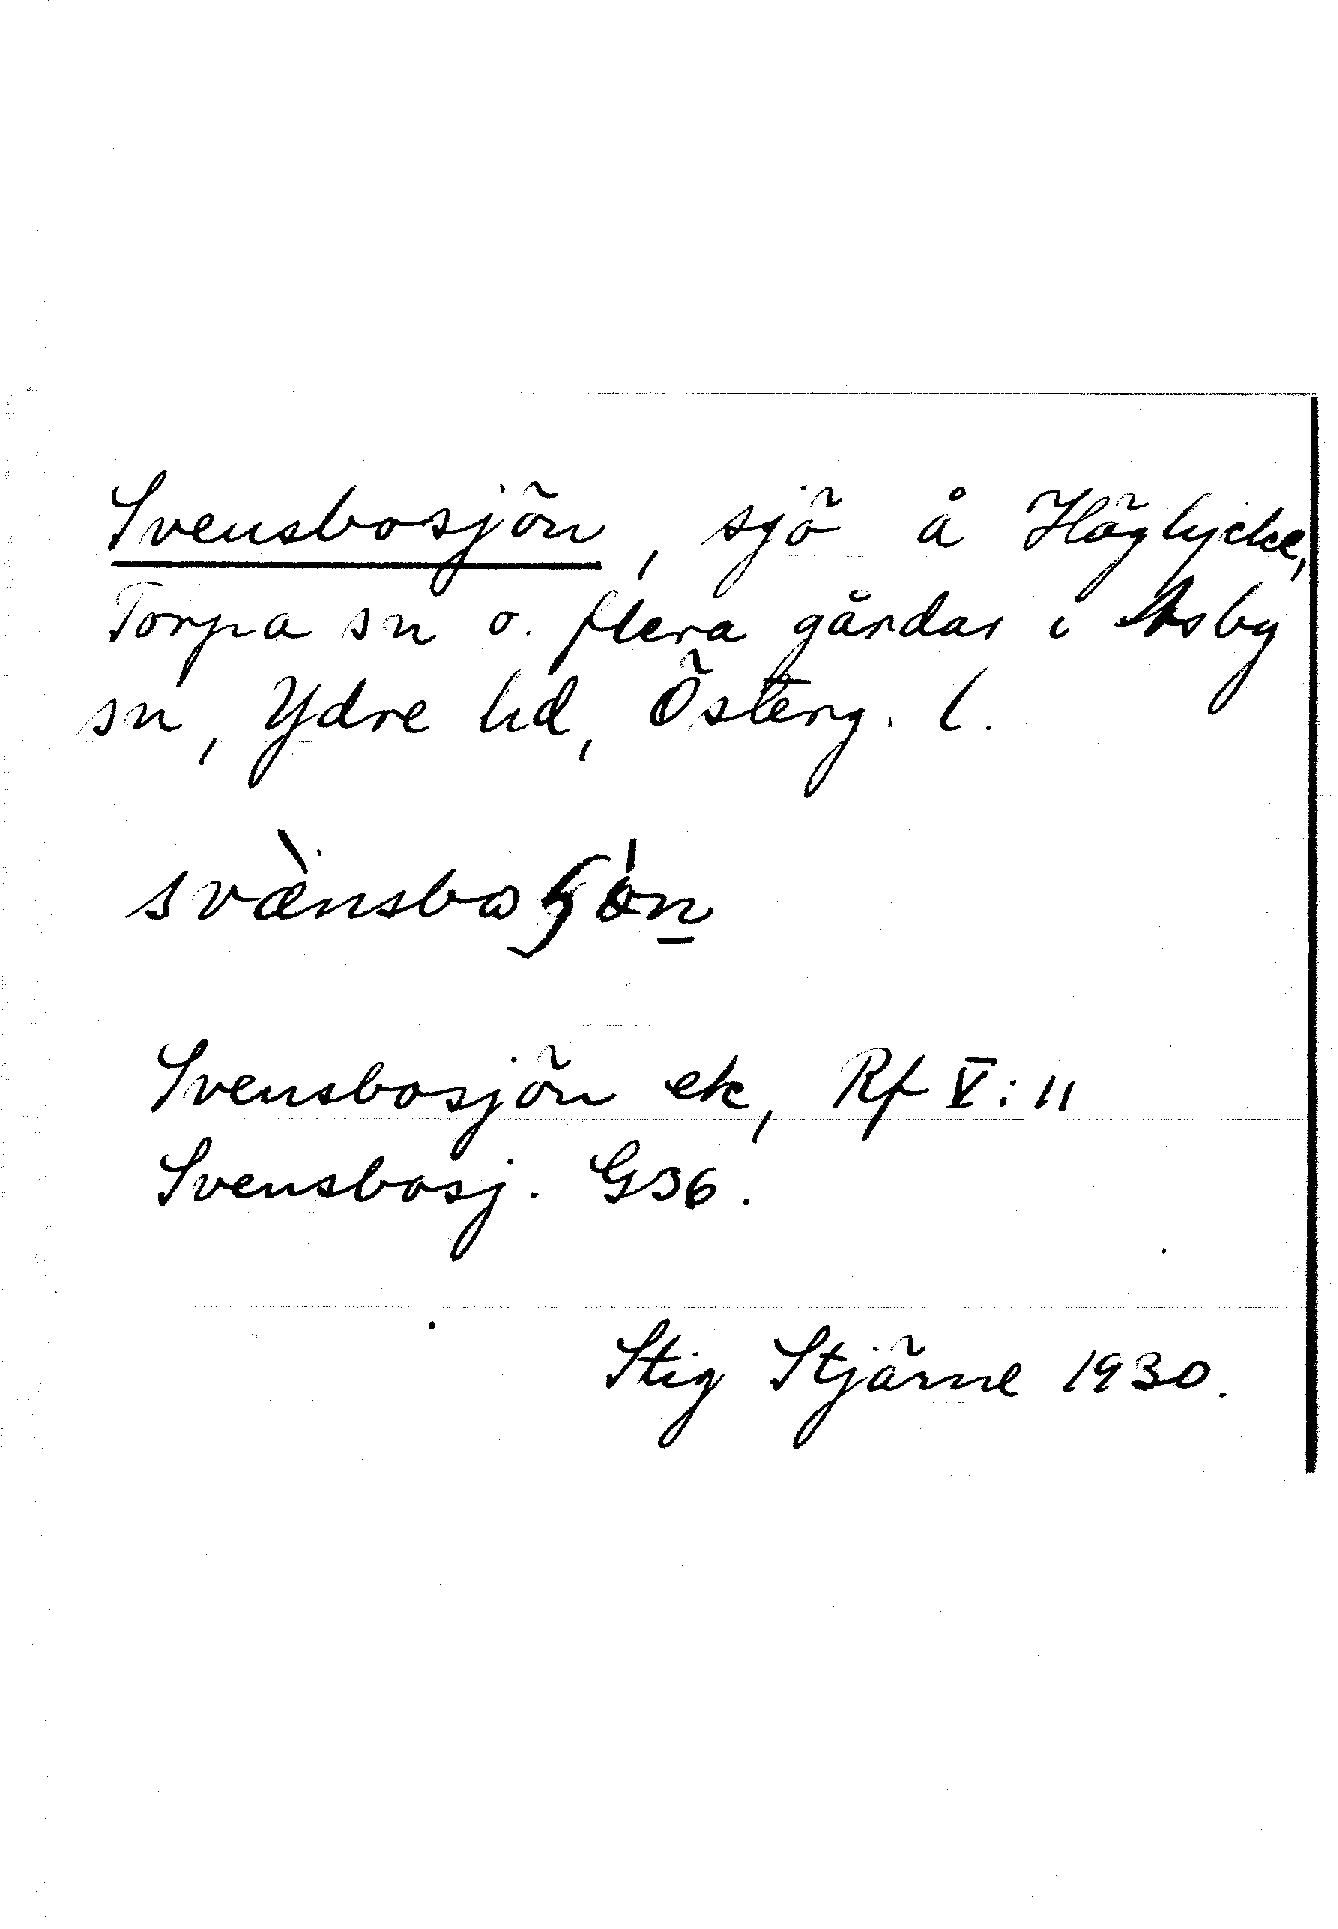 Svensbosjön, sjö å Höglycke,
Torpa sn o. flera gårdar i Asby
sn, Ydre hd, Österg. l.
Svensbosjön ek, Rf V:11
Svensbosj. G36.
Stig Stjärne 1930.